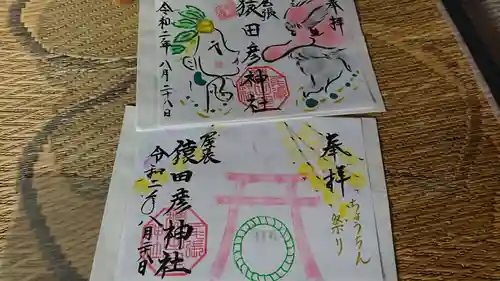 奉拝
尾張
猿田彦神社
令和二年八月二八日
奉拝
ちょうちん祭り
尾張
猿田彦神社
令和二年八月二六日